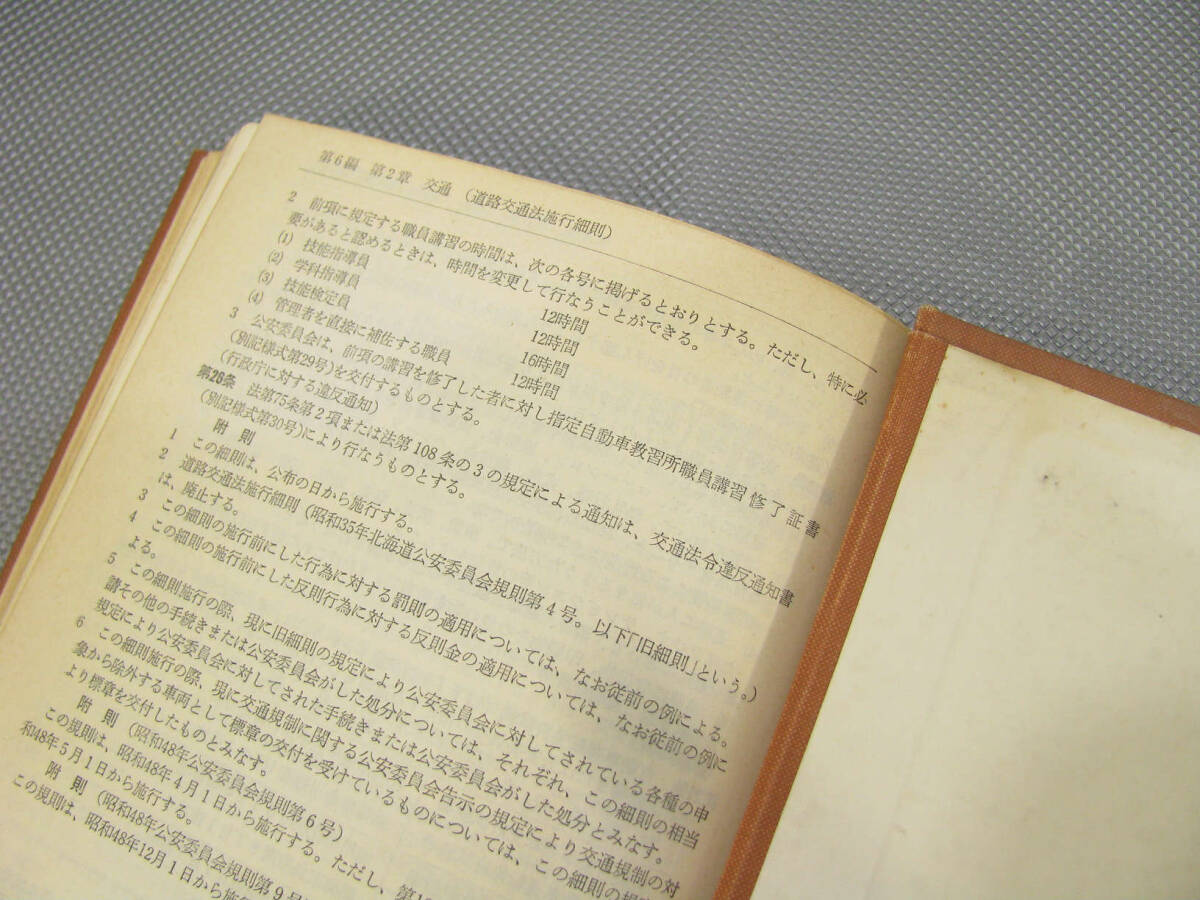 第6編 第2章 交通 (道路交通法施行細則)
2 前項に規定する職員講習の時間は、次の各号に掲げるとおりとする。ただし、特に必
要があると認めるときは、時間を変更して行なうことができる。
(1) 技能指導員 12時間
(2) 学科指導員 12時間
(3) 技能検定員 16時間
(4) 管理者を直接に補佐する職員 12時間
3 公安委員会は、前項の講習を修了した者に対し指定自動車教習所職員講習修了証書
(別記様式第29号)を交付するものとする。
(行政庁に対する違反通知)
第26条 法第75条第2項または法第108条の3の規定による通知は、交通法令違反通知書
(別記様式第30号)により行なうものとする。
附 則
1 この細則は、公布の日から施行する。
2 道路交通法施行細則(昭和35年北海道公安委員会規則第4号。以下「旧細則」という。)
は、廃止する。
3 この細則の施行前にした行為に対する罰則の適用については、なお従前の例による。
4 この細則の施行前にした反則行為に対する反則金の適用については、なお従前の例に
よる。
5 この細則施行の際、現に旧細則の規定により公安委員会に対してされている各種の申
請その他の手続きまたは公安委員会がした処分については、それぞれ、この細則の相当
規定により公安委員会に対してされた手続きまたは公安委員会がした処分とみなす。
6 この細則施行の際、現に交通規制に関する公安委員会告示の規定により交通規制の対
象から除外する車両として標章の交付を受けているものについては、この細則の規定
より標章を交付したものとみなす。
附 則 (昭和48年公安委員会規則第6号)
この規則は、昭和48年4月1日から施行する。ただし、第
和48年5月1日から施行する。
附 則 (昭和48年公安委員会規則第9号
この規則は、昭和48年12月1日から施